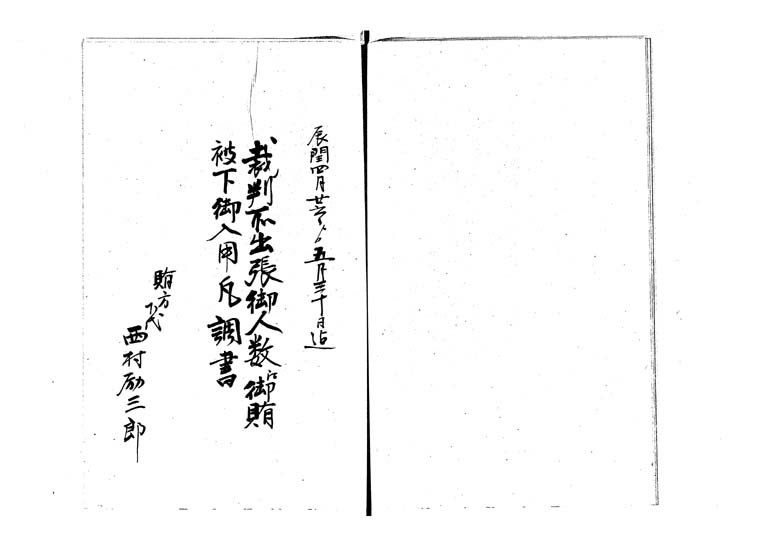 辰閏四月廿六日ゟ五月三十日迄
裁判所出張御人数江御賄
被下御入用凡調書
賄方
下代
西村励三郎